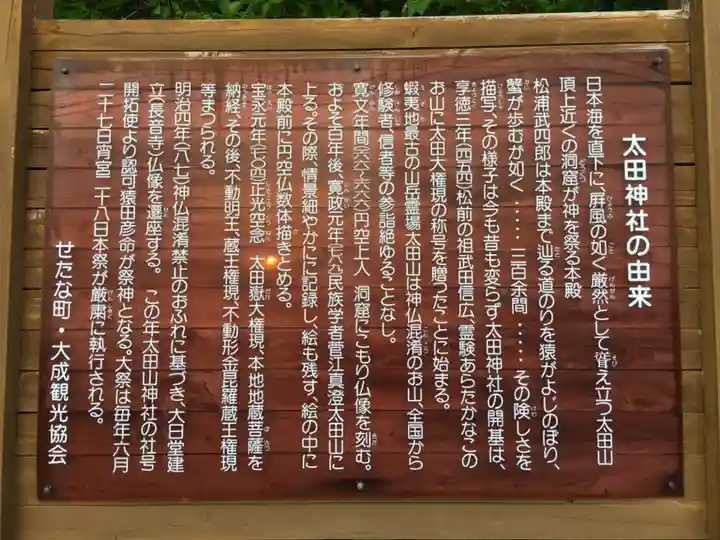 太田神社の由来
日本海を直下に、屏風の如く厳然として聳え立つ太田山
頂上近くの洞窟が神を祭る本殿
松浦武四郎は本殿まで辿る道のりを猿がよじのぼり、
蟹が歩むが如く・・・・・三百余間・・・・・その険しさを
描写、その様子は今も昔も変らず、太田神社の開基は、
享徳三年(一四五四)松前の祖武田信広、霊験あらたかなこの
お山に太田大権現の称号を贈ったことに始まる。
蝦夷地最古の山岳霊場太田山は神仏混淆のお山、全国から
修験者、信者等の参詣絶ゆることなし。
寛文年間(一六六一~一六六六)円空上人 洞窟にこもり仏像を刻む。
およそ百年後、寛政元年(一七八九)民族学者菅江真澄太田山に
上る。その際、情景細やかにに記録し、絵も残す、絵の中に
本殿前に円空仏数体描きとめる。
宝永元年(一七〇四)正光空念 太田嶽大権現、本地地蔵菩薩を
納経、その後、不動明王、蔵王権現、不動形金毘羅蔵王権現
等まつられる。
明治四年(一八七一)神仏混淆禁止のおふれに基づき、大日堂建
立(長音寺)仏像を遷座する。 この年太田山神社の社号
開拓使より認可猿田彦命が祭神となる。大祭は毎年六月
二十七日宵宮二十八日本祭が厳粛に執行される。
せたな町・大成観光協会